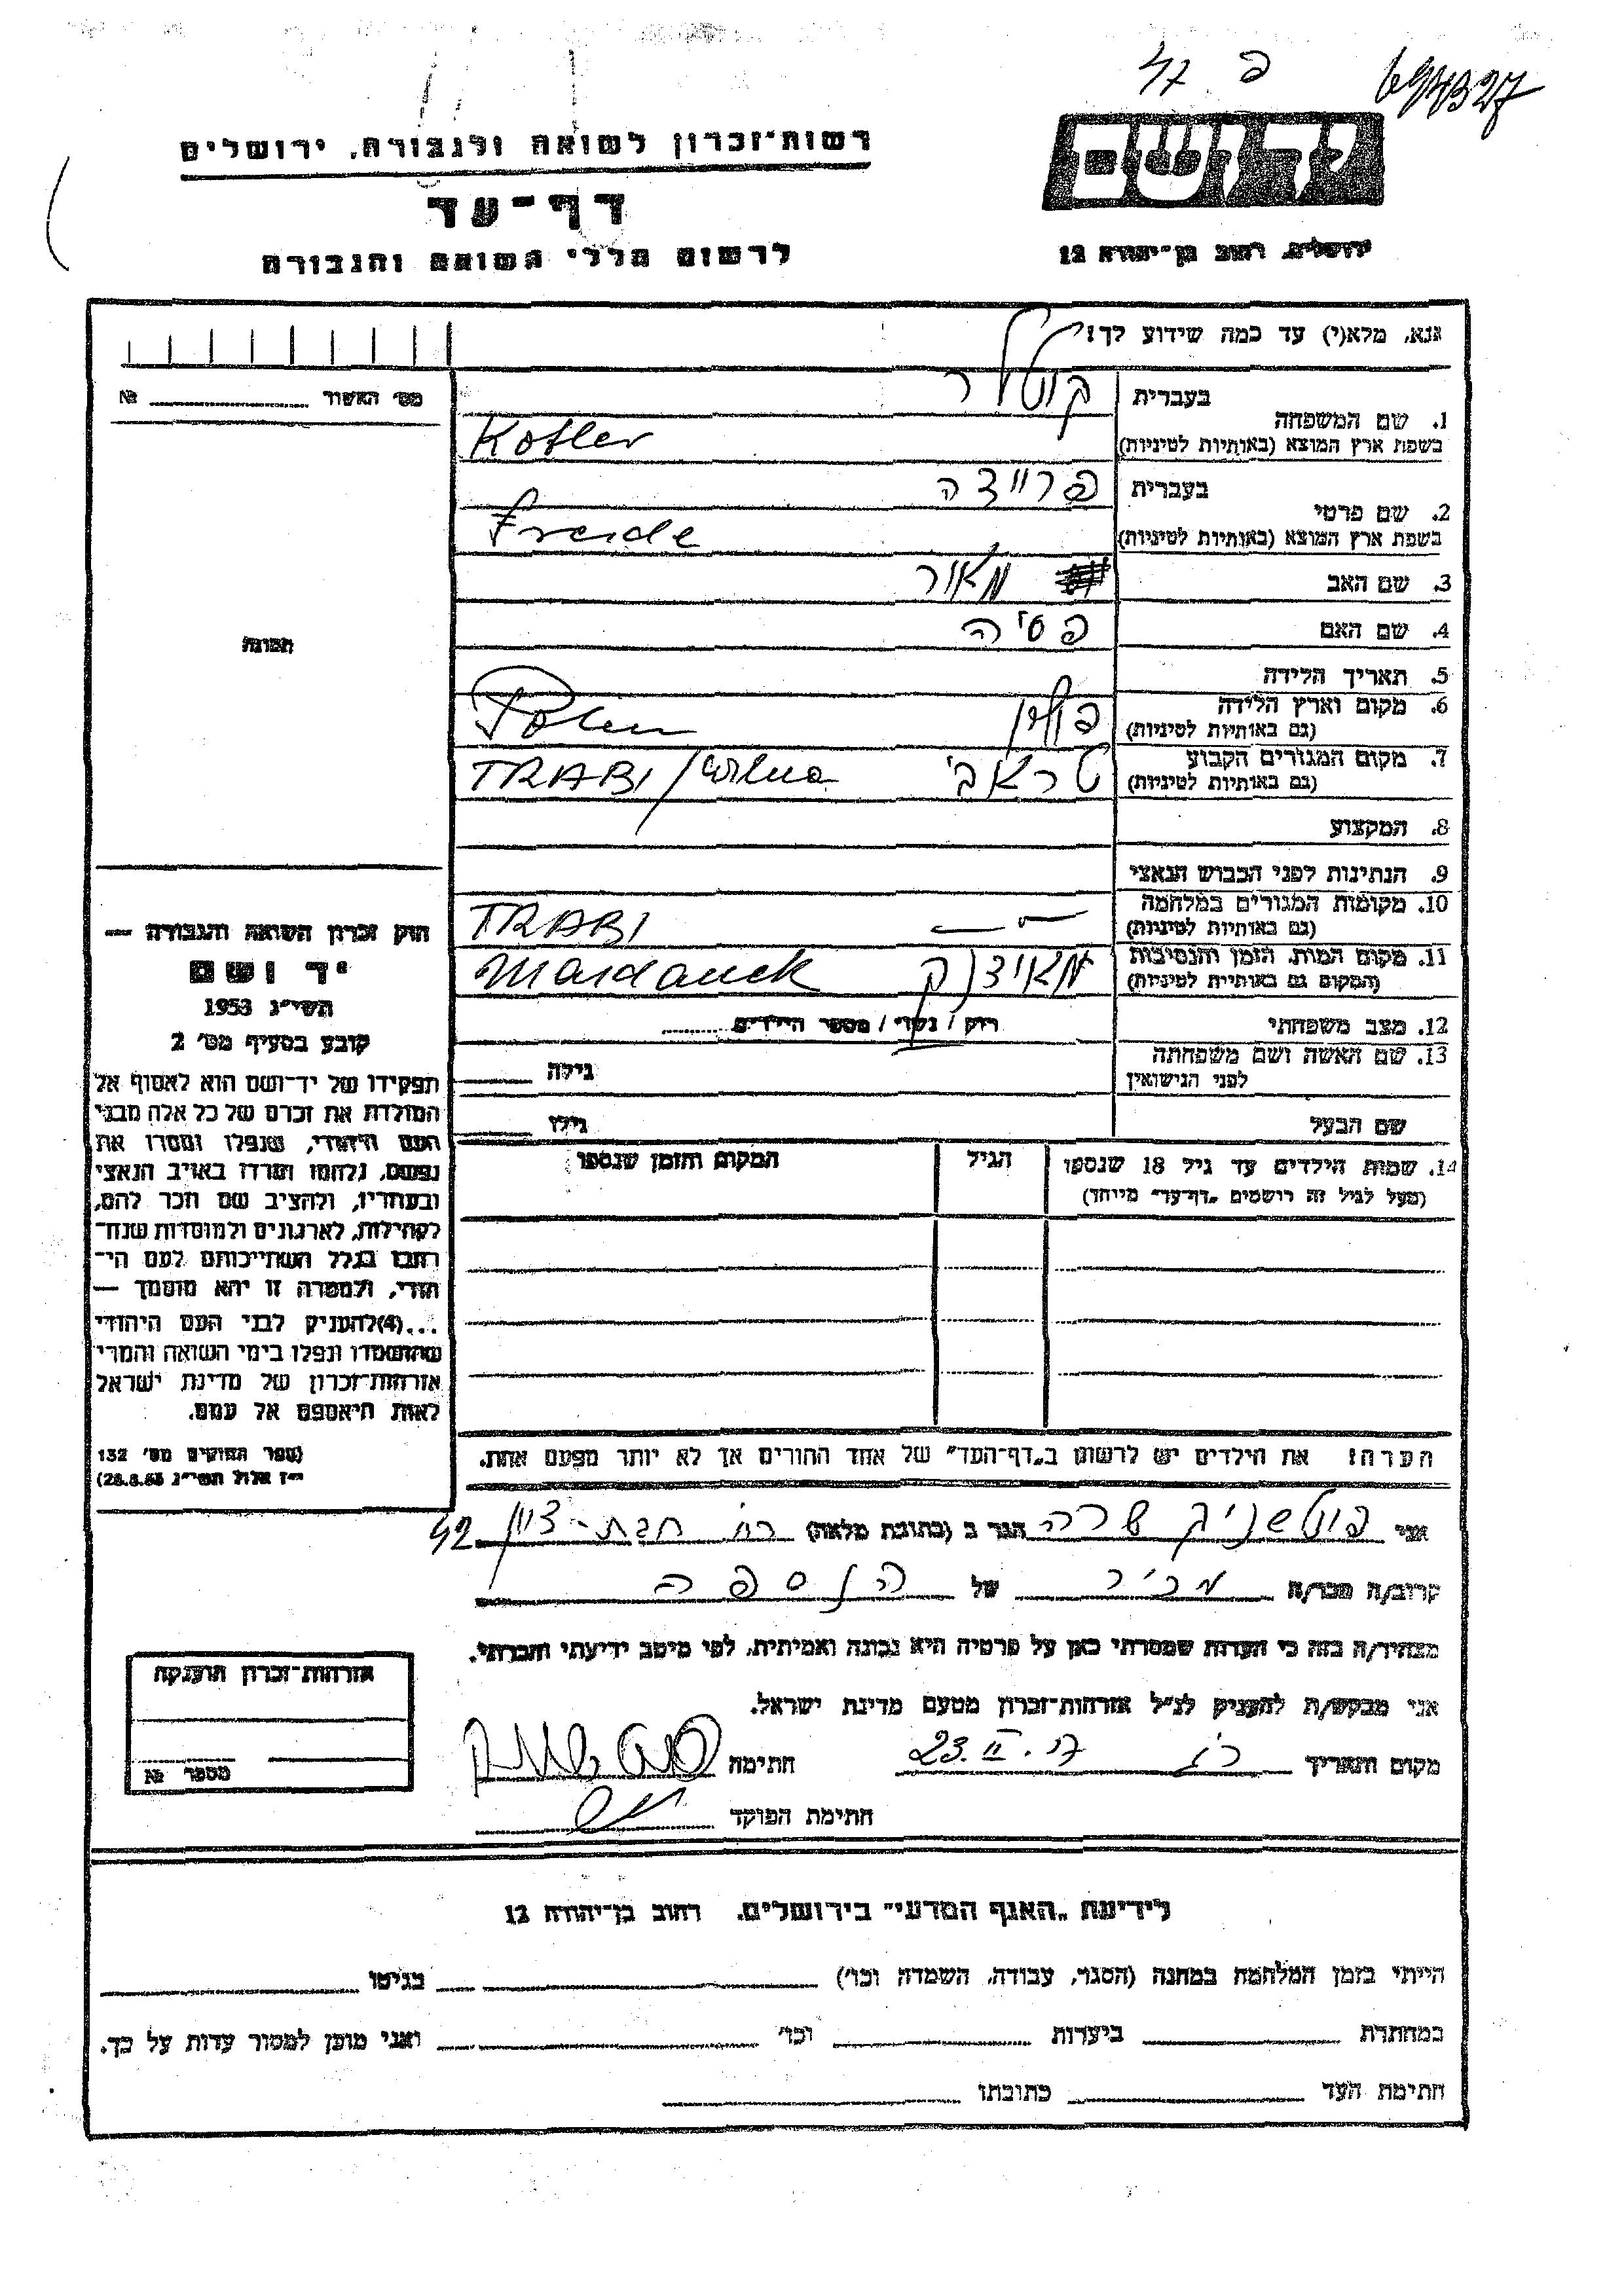 694327
פ 47
רשות־זכרון לשואה ולגבורה, ירושלים
יד ושם
דף־עד
לרשום חללי השואה והגבורה
ירושלים, רחוב בן־יהודה 12
אנא, מלא(י) עד כמה שידוע לך!
מס׳ האשור № 
1. שם המשפחה
בעברית קוטלר
בשפת ארץ המוצא (באותיות לטיניות) Kotler
2. שם פרטי
בעברית פריידה
בשפת ארץ המוצא (באותיות לטיניות) Freide
3. שם האב מאור
4. שם האם פסיה
5. תאריך הלידה
6. מקום וארץ הלידה
(גם באותיות לטיניות) פולין Polen
7. מקום המגורים הקבוע
(גם באותיות לטיניות) טראבי TRABI/Wilna
8. המקצוע
9. הנתינות לפני הכבוש הנאצי
10. מקומות המגורים במלחמה
(גם באותיות לטיניות) TRABI
11. מקום המות, הזמן והנסיבות
(המקום גם באותיות לטיניות) מאידנק Maidanek
12. מצב משפחתי רווק / נשוי / מספר הילדים
13. שם האשה ושם משפחתה
לפני הנישואין
גילה
שם הבעל גילו
14. שמות הילדים עד גיל 18 שנספו
(מעל לגיל זה רושמים „דף־עד״ מייחד)
הגיל
המקום והזמן שנספו
הערה: את הילדים יש לרשום ב„דף־העד״ של אחד ההורים אך לא יותר מפעם אחת.
תמונה
חוק זכרון השואה והגבורה —
יד ושם
תשי״ג 1953
קובע בסעיף מס׳ 2
תפקידו של יד־ושם הוא לאסוף אל
המולדת את זכרם של כל אלה מבני
העם היהודי, שנפלו ומסרו את
נפשם, נלחמו ומרדו באויב הנאצי
ובעוזריו, ולהציב שם וזכר להם,
לקהילות, לארגונים ולמוסדות שנח־
רבו בגלל השתייכותם לעם הי־
הודי, ולמטרה זו יהא מוסמך —
...(4)להעניק לבני העם היהודי
שהושמדו ונפלו בימי השואה והמרי
אזרחות־זכרון של מדינת ישראל
לאות היאספם אל עמם.
(ספר החוקים מס׳ 132
י״ז אלול תשי״ג 28.8.53)
אני פוטשניק שרה הגר ב (כתובת מלאה) רח׳ חבת-ציון 42
קרוב/ה מכר/ה מכיר של הנספה
מצהיר/ה בזה כי העדות שמסרתי כאן על פרטיה היא נכונה ואמיתית, לפי מיטב ידיעתי והכרתי.
אני מבקש/ת להעניק לנ״ל אזרחות־זכרון מטעם מדינת ישראל.
מקום ותאריך רג 23.II. חתימה
חתימת הפוקד
אזרחות־זכרון הוענקה
מספר №
לידיעת „האגף המדעי״ בירושלים, רחוב בן־יהודה 12
הייתי בזמן המלחמה במחנה (הסגר, עבודה, השמדה וכו׳) בגיטו
במחתרת ביערות וכו׳ ואני מוכן למסור עדות על כך.
חתימת העד כתובתו